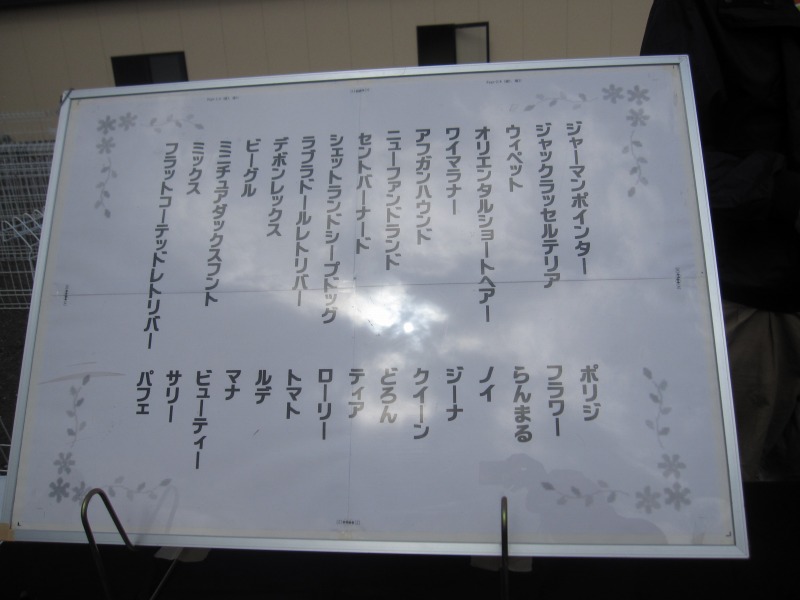 ジャーマンポインター ポリジ
ジャックラッセルテリア フラワー
ウィペット らんまる
オリエンタルショートヘアー ノイ
ワイマラナー ジーナ
アフガンハウンド クイーン
ニューファンドランド どろん
セントバーナード ティア
シェットランドシープドッグ ローリー
ラブラドールレトリバー トマト
デボンレックス ルデ
ビーグル マナ
ミニチュアダックスフント ビューティー
ミックス サリー
フラットコーテッドレトリバー パフェ